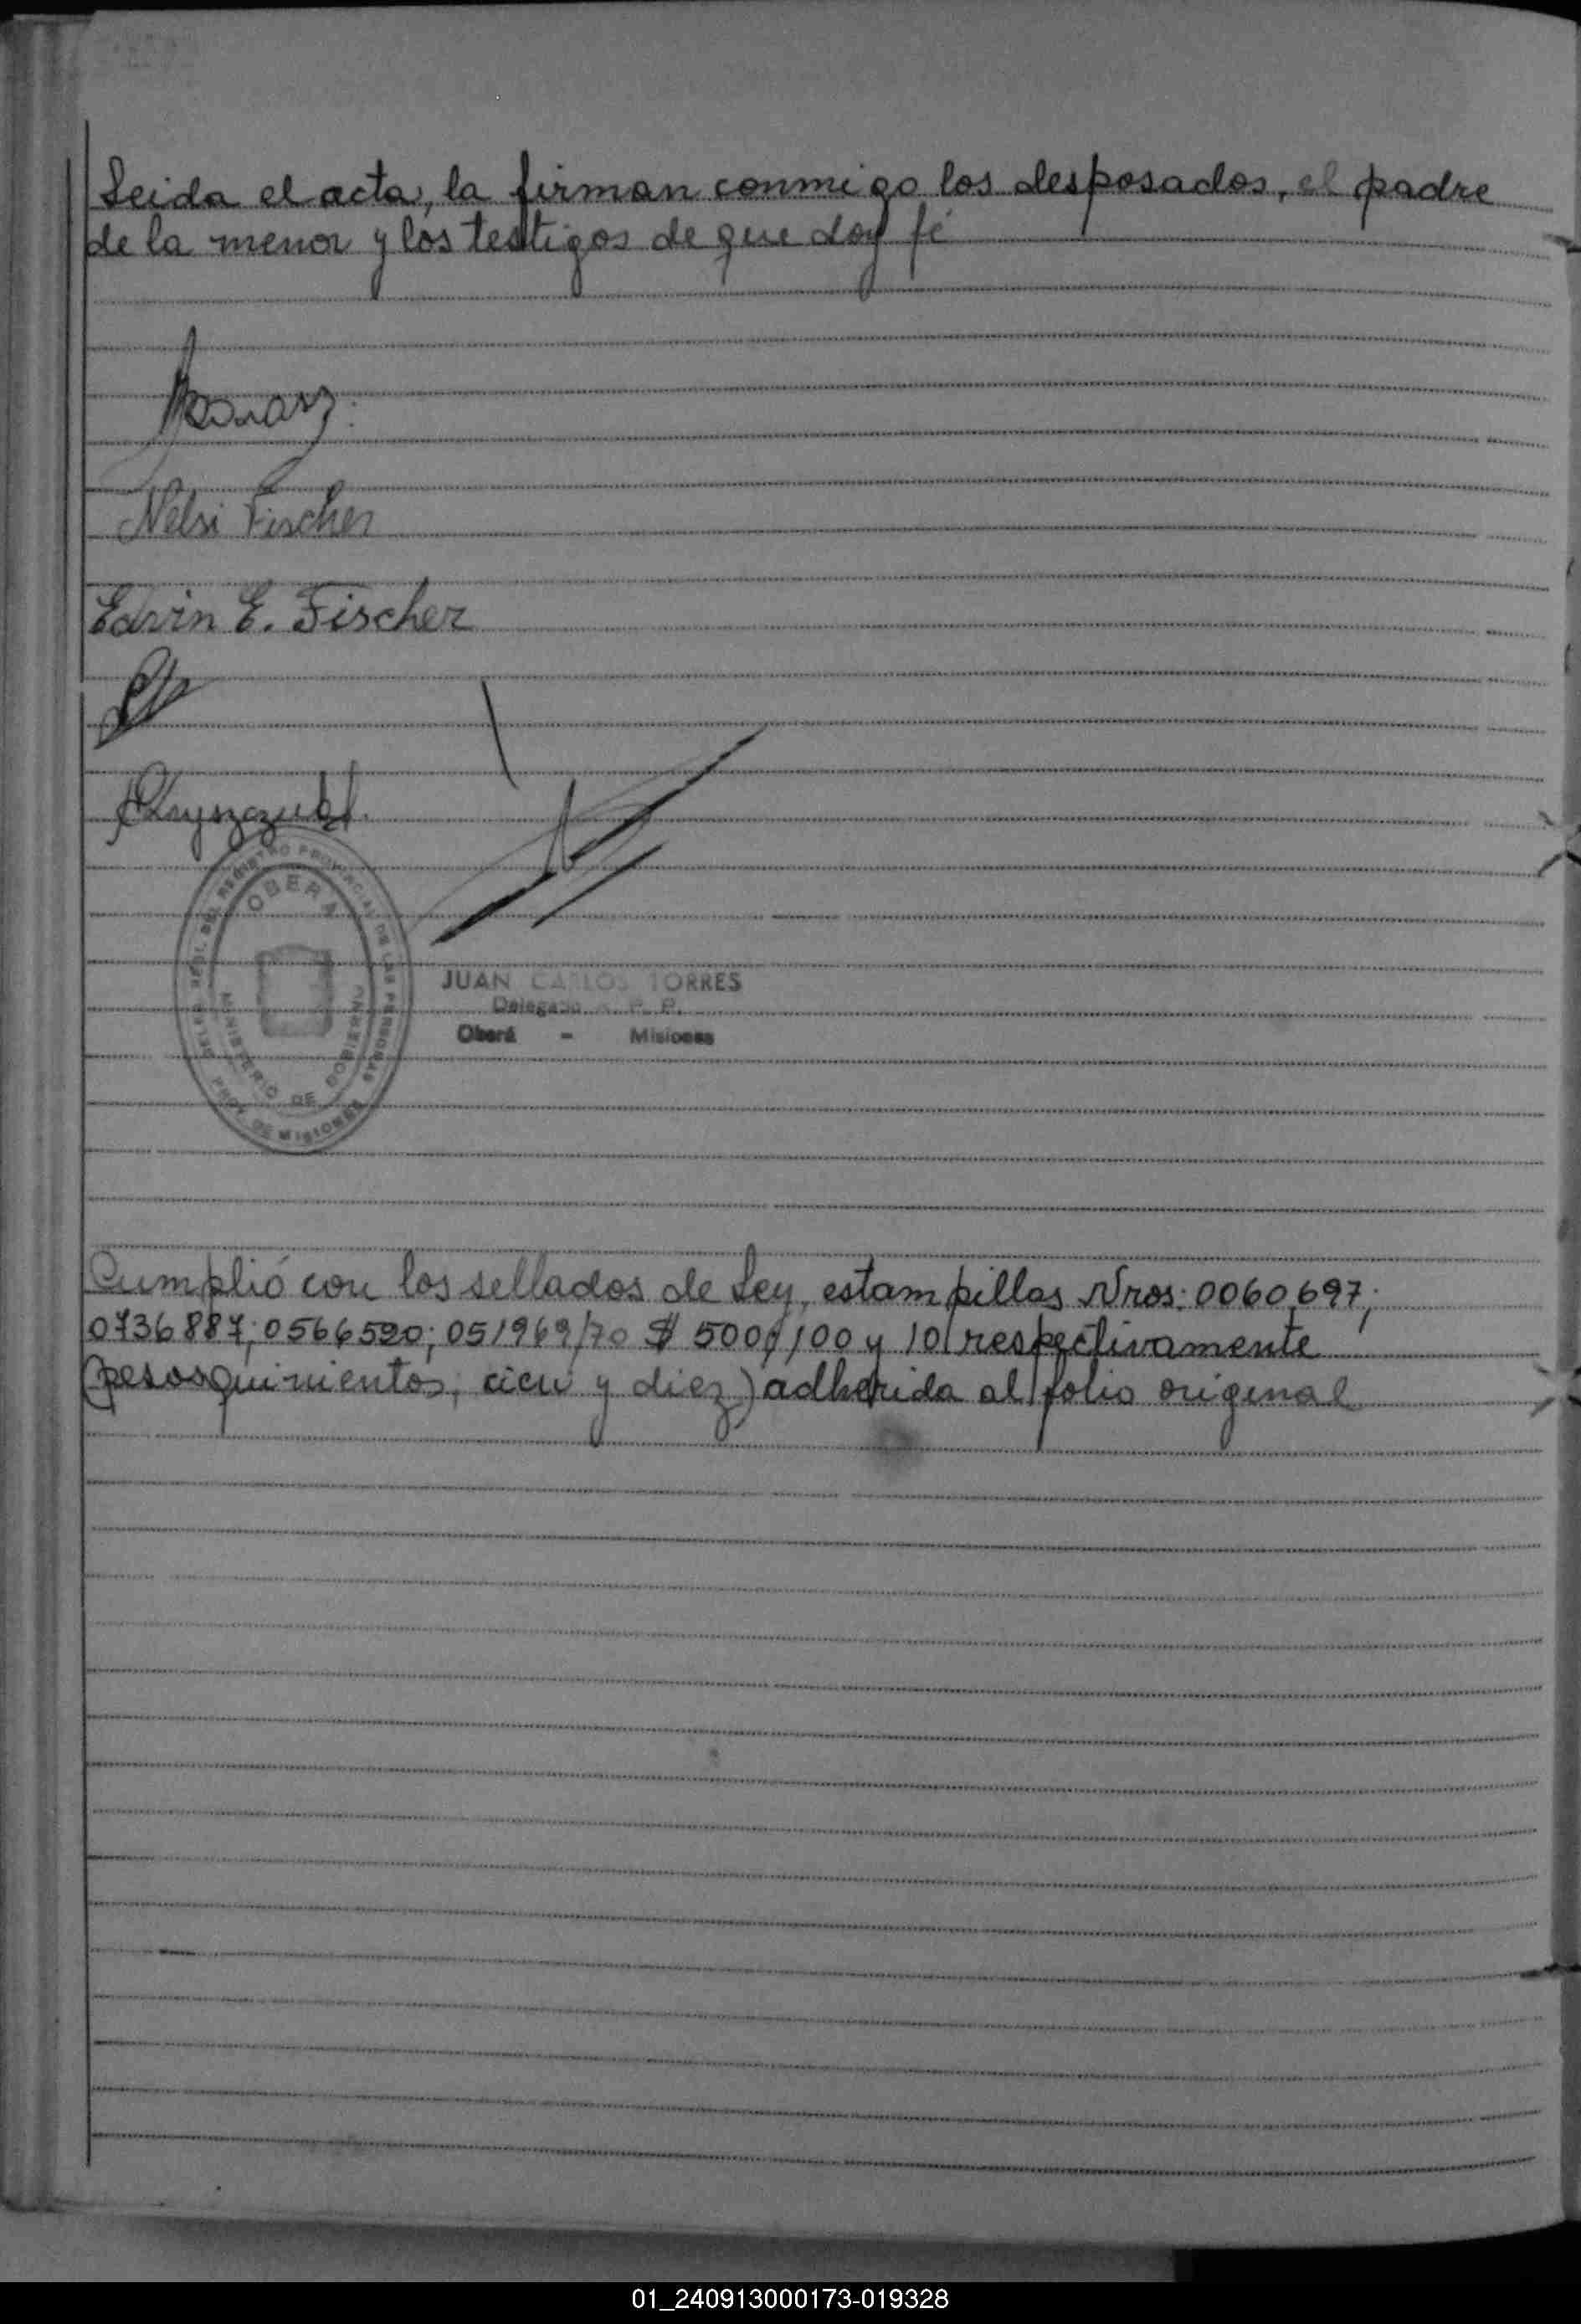 Leida el acta, la firman conmigo los desposados, el padre
de la menor y los testigos de que doy fé
Nelsi Fischer
Edvin E. Fischer
DELEG. REG. DEL REGISTRO PROVINCIAL DE LAS PERSONAS
OBERA
MINISTERIO DE GOBIERNO
PROV. DE MISIONES
JUAN CARLOS TORRES
Delegado R. P. P.
Oberá - Misiones
Cumplió con los sellados de Ley, estampillas Nros: 0060,697;
0736887; 0566520; 051969/70 $ 500, 100 y 10 respectivamente
(pesos quinientos, cien y diez) adherida al folio original
01_240913000173-019328